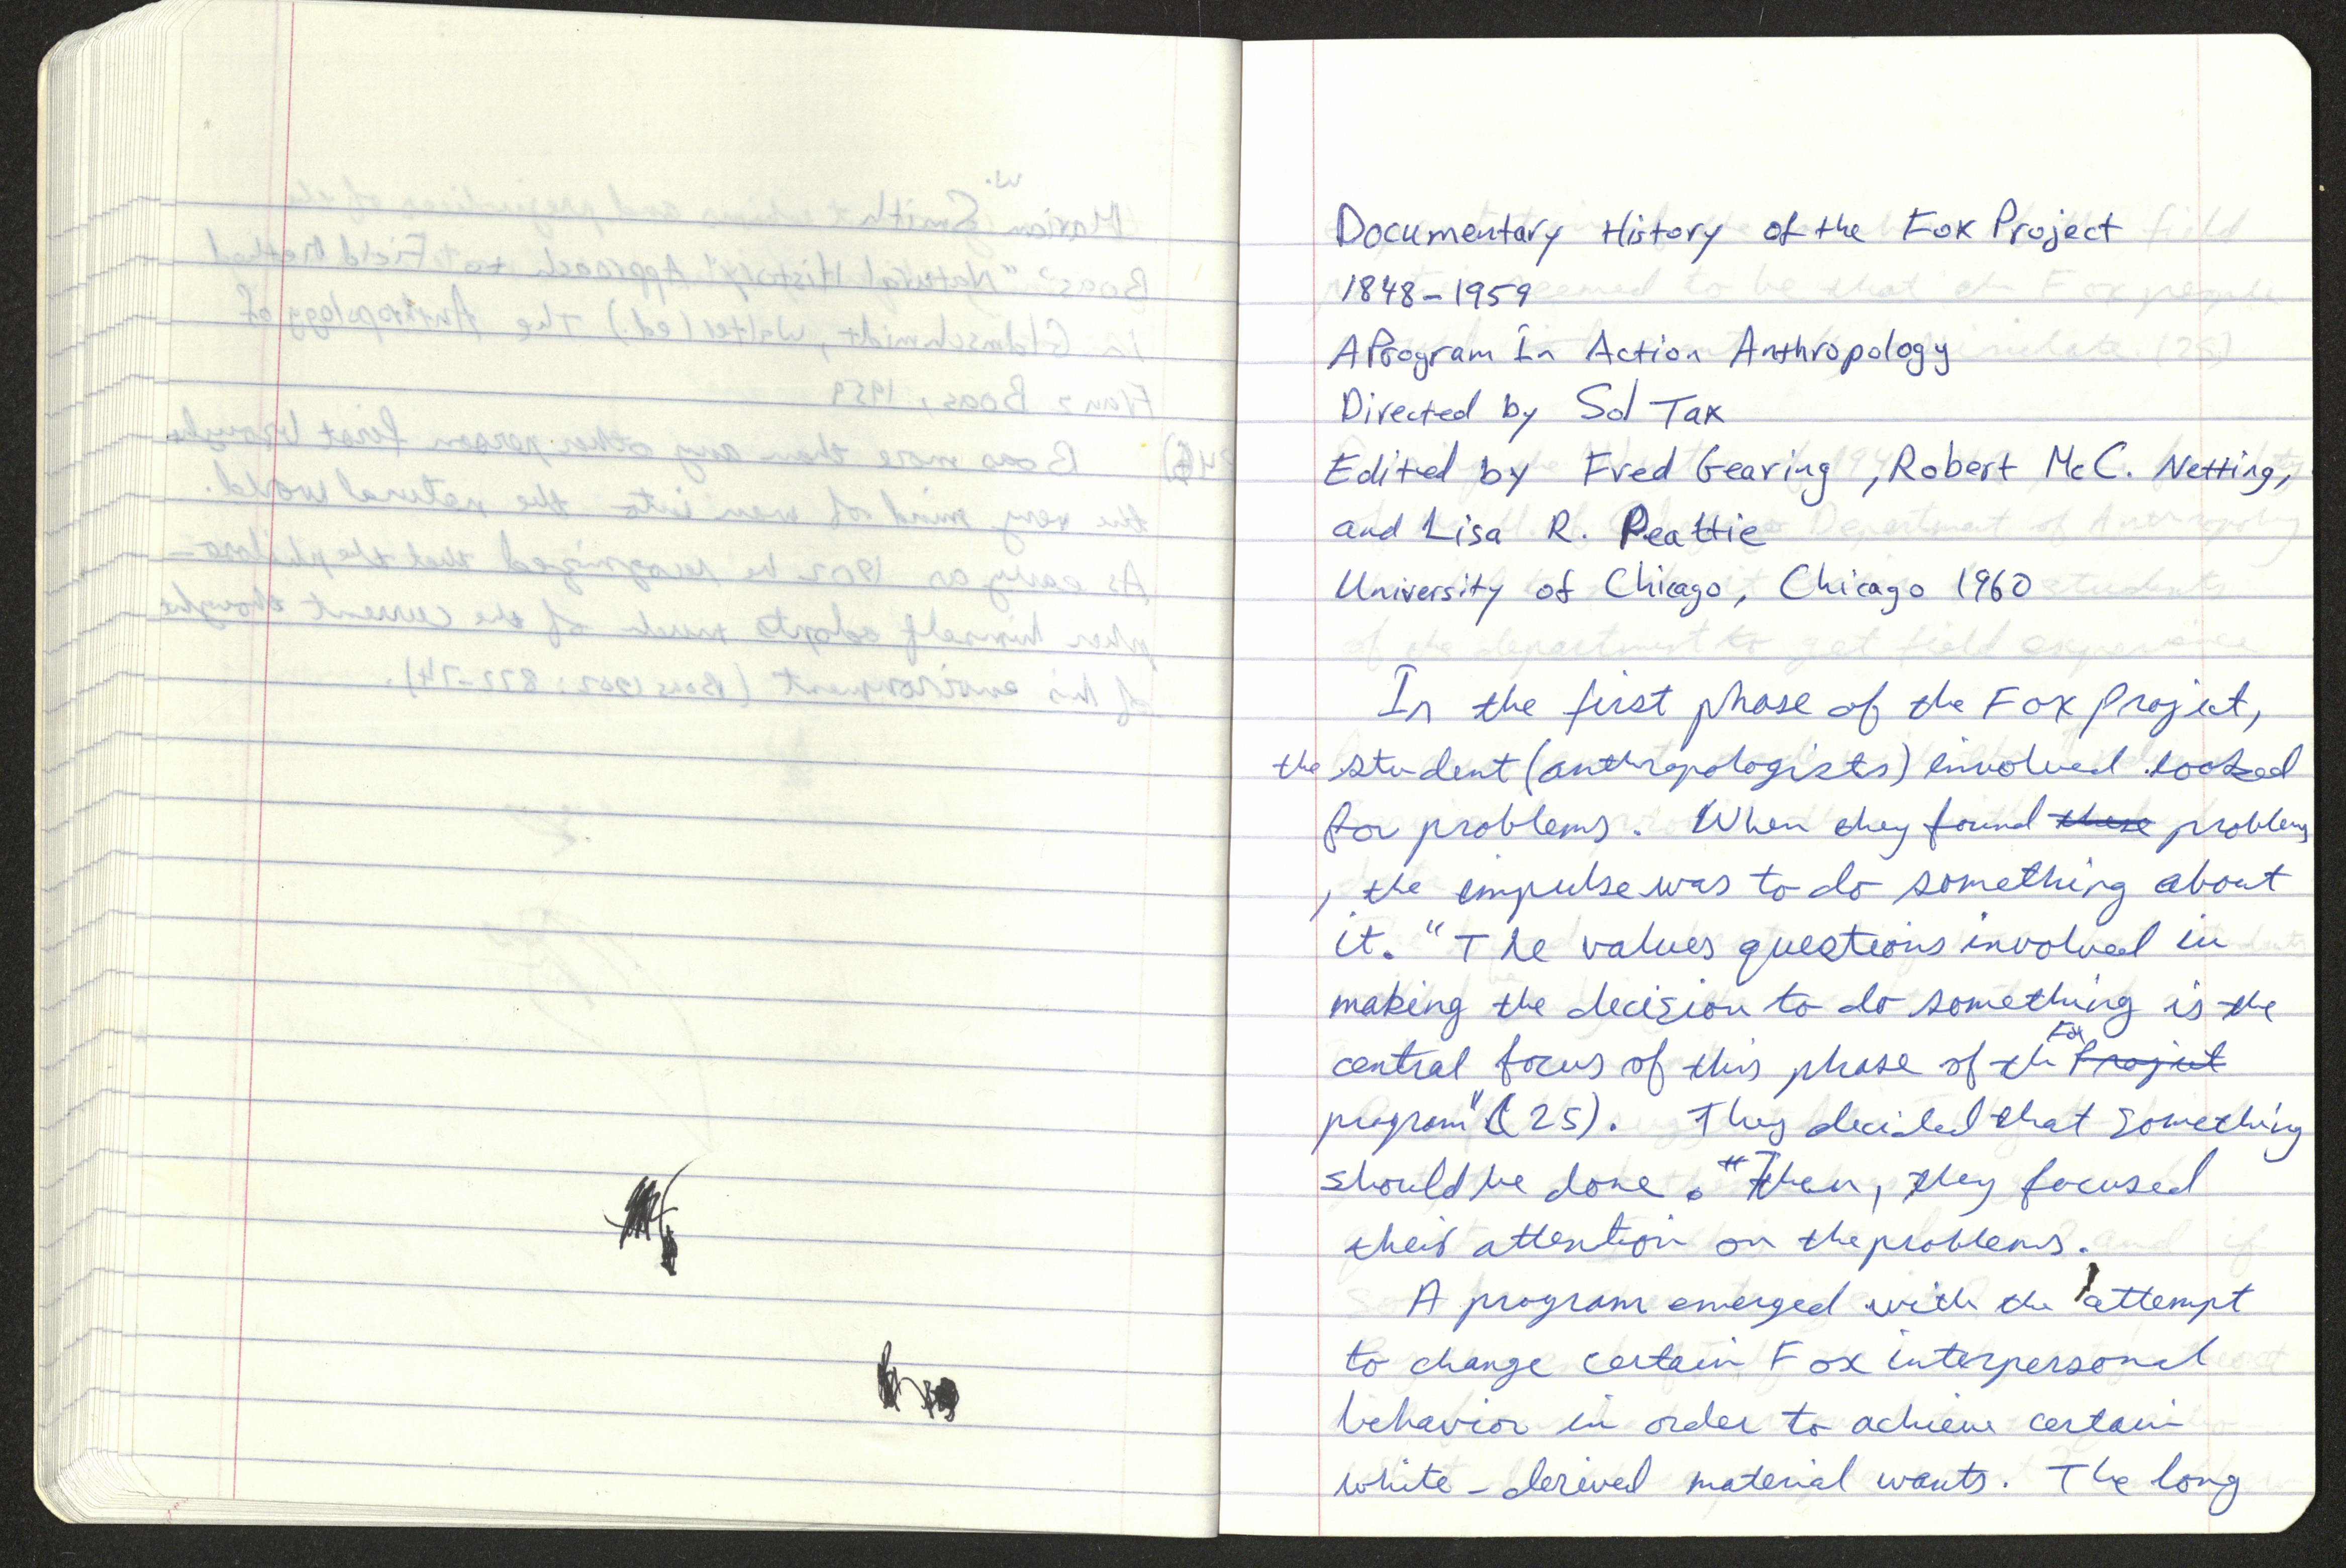 Documentary History of the Fox Project
1848-1959
A Program In Action Anthropology
Directed by Sol Tax
Edited by Fred Gearing, Robert McC. Netting,
and Lisa R. Peattie
University of Chicago, Chicago 1960
In the first phase of the Fox project,
the student (anthropologists) involved looked
for problems. When they found these problems
, the impulse was to do something about
it. "The values questions involved in
making the decision to do something is the
central focus of this phase of the Fox Project
program" (25). They decided that something
should be done. "Then, they focused
their attention on the problems.
A program emerged with the attempt
to change certain Fox interpersonal
behavior in order to achieve certain
white-derived material wants. The long